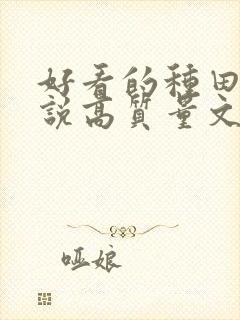 好看的種田
說高質量文
哑娘